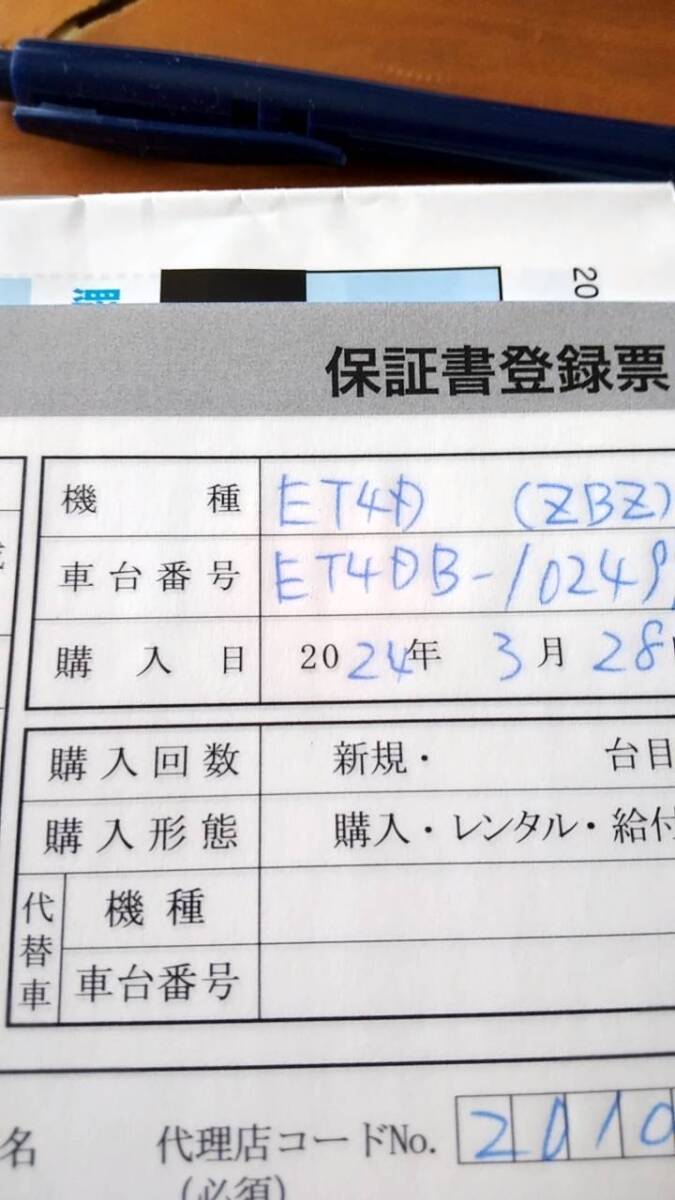 20
保証書登録票
機種 ET4D (ZBZ)
車台番号 ET4DB-10249
購入日 2024年 3月 28
購入回数 新規・ 台目
購入形態 購入・レンタル・給付
代替車
機種
車台番号
名 代理店コードNo. 2010
(必須)